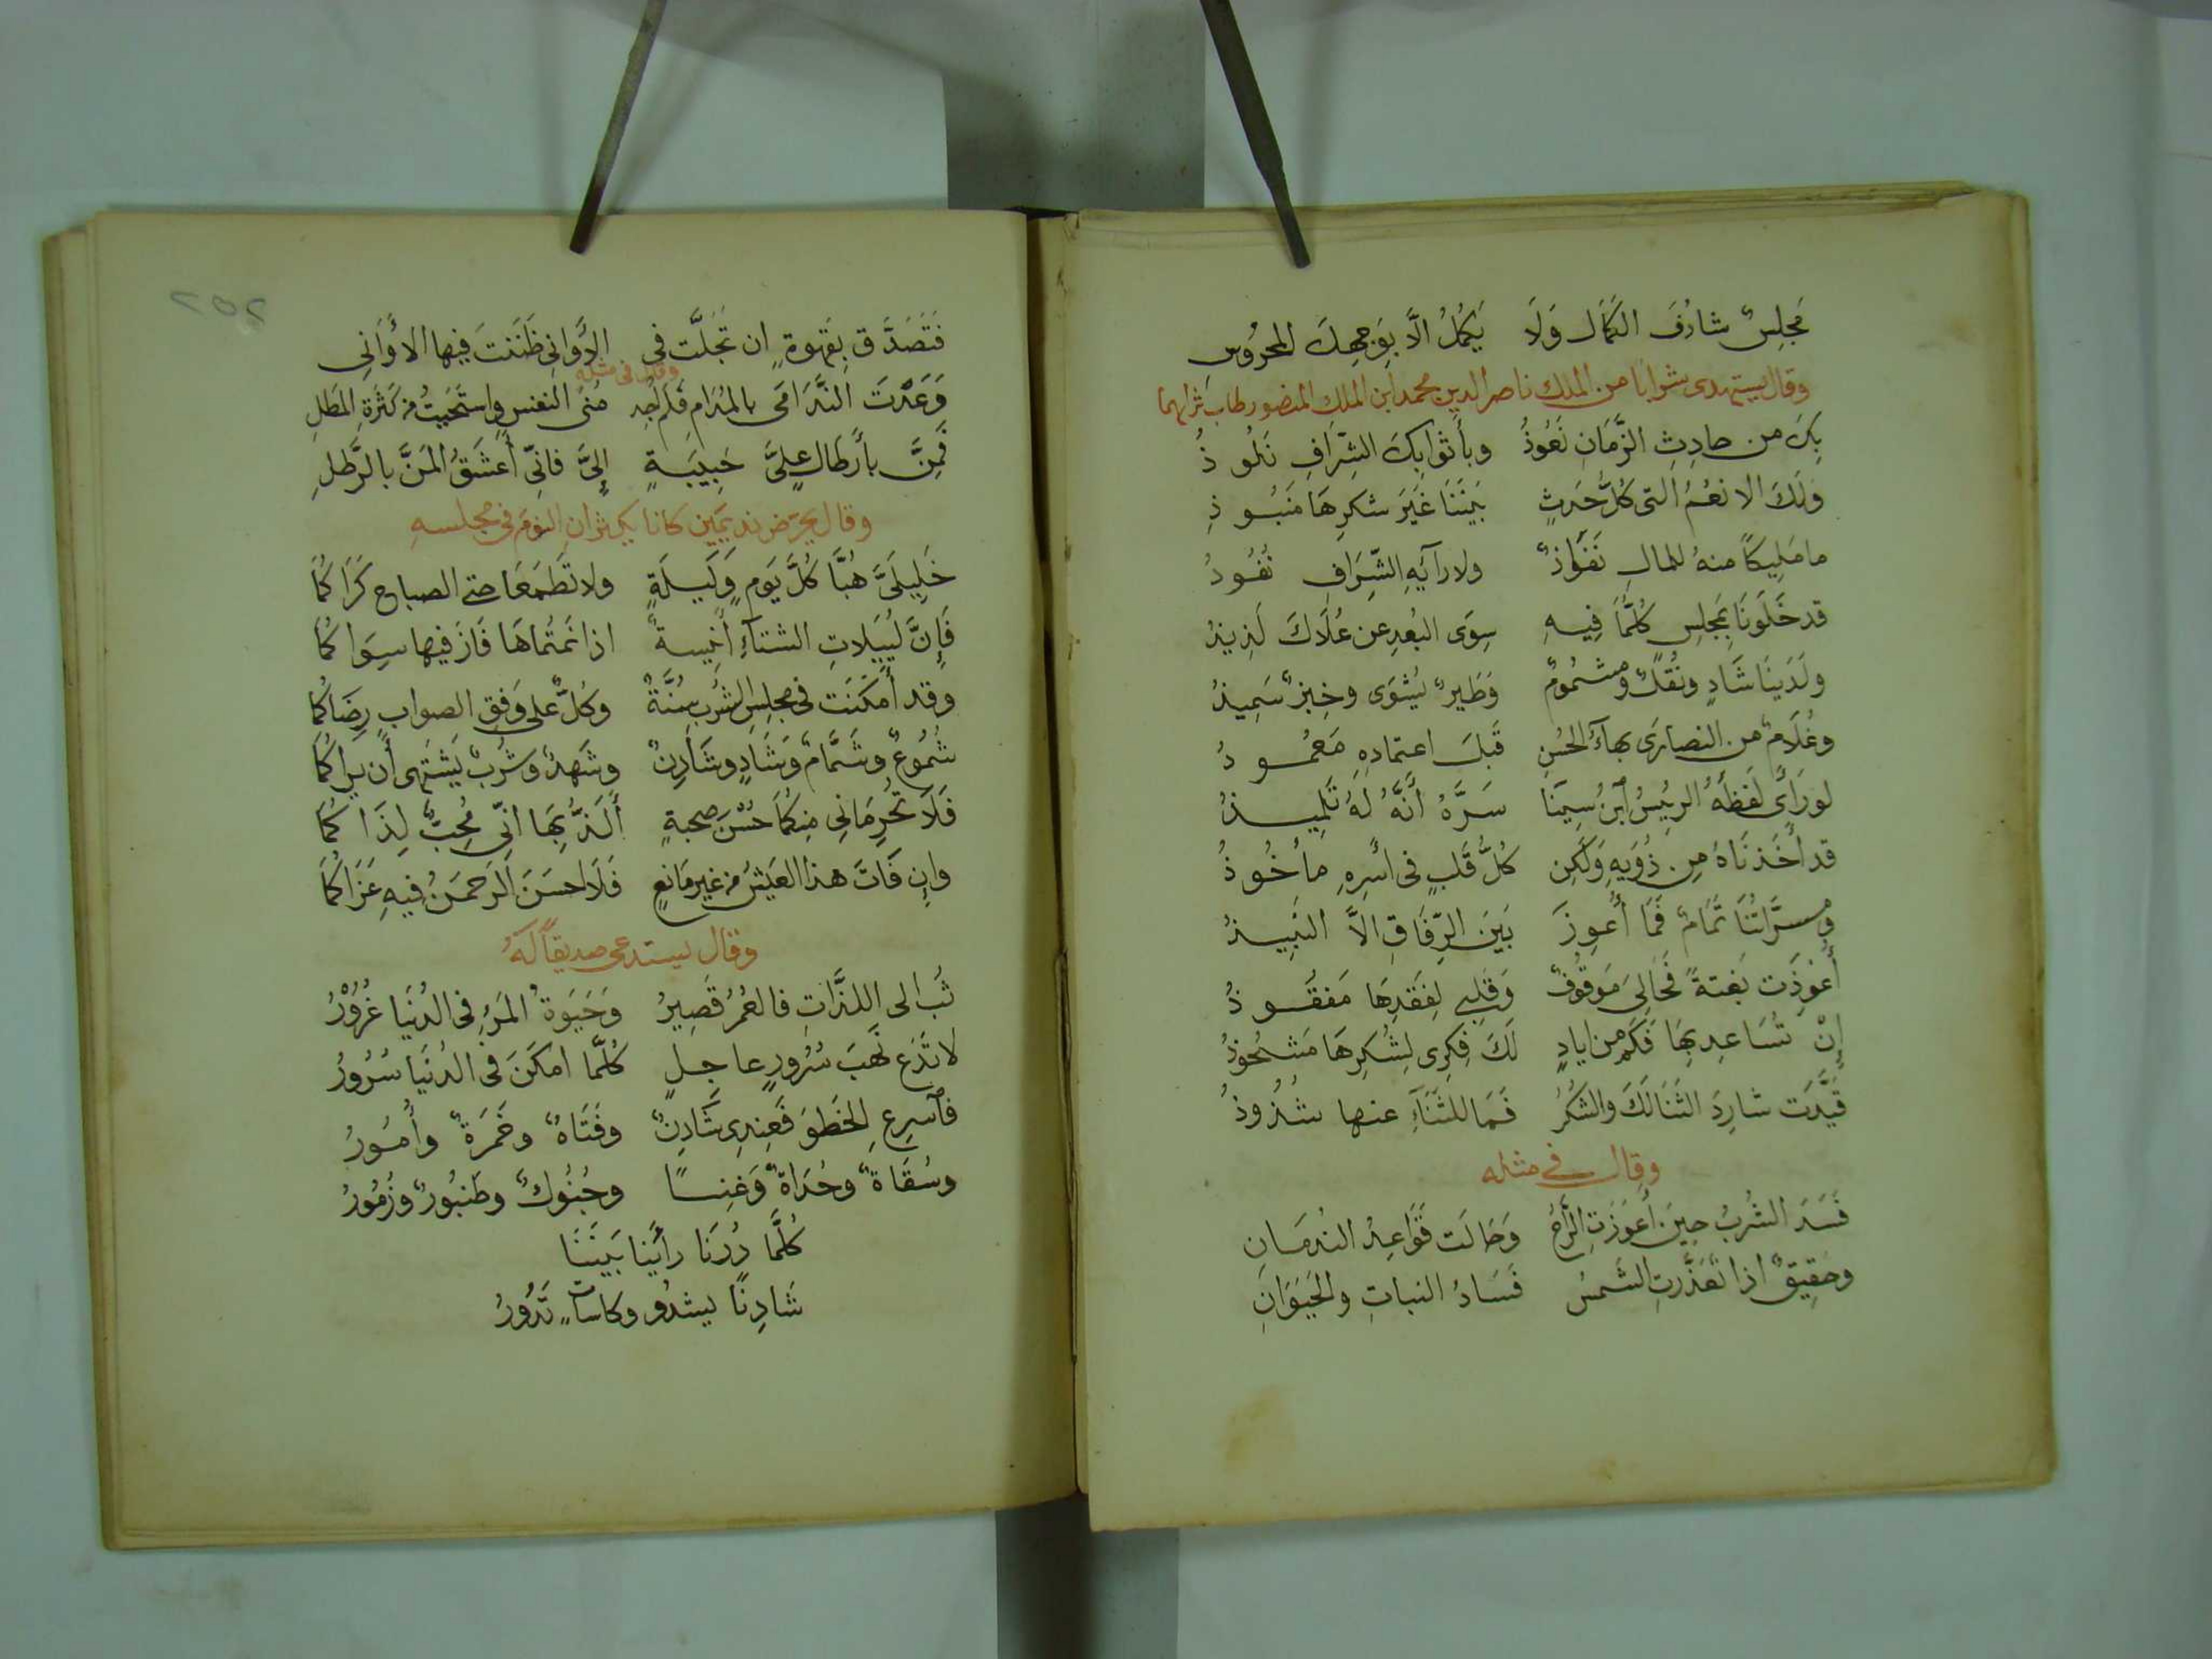 مَجلِسٌ شارَفَ الكَمَالَ وَلَا يَكمُلُ الَّا بِوَجهِكَ المحرُوسِ
وقال يستهدى شرابًا من الملك ناصر الدين محمد ابن الملك المنصور طاب ثراهما
بِكَ من حادِثِ الزَّمَانِ نَعُوذُ وبأَثوابِكَ الشِّرَافِ نَلُوذُ
وَلَكَ الانعُمُ التى كُلُّ حَدَثٍ بَينَنَا غَيرَ شكرِهَا مَنبُوذِ
ما مَلِيكًا منهُ للمالِ نَفَاذٌ ولارآيَهِ الشِّرَافِ نُفُوذُ
قد خَلَونَا بمَجلِسٍ كُلُّمَا فِيهِ سِوَى البُعدِ عن عُلَاكَ لَذِيذُ
ولَدَينَا شَادٍ ونُقلٌ ومشمُومٌ وَطَيرٌ يُشوَى وخبزٌ سَمِيذُ
وغُلَامٌ من النصارَى بمآءِ الحُسنِ قَبلَ اعتمادِهِ مَعمُودُ
لو رَاى لَفظَهُ الرئيسُ آبنُ سِينَا سَرَّهُ أَنَّهُ لَهُ تَلمِيذُ
قد أَخَذنَاهُ مِن ذَوِيهِ وَلَكِن كُلُّ قَلبٍ فى أسرِهِ مأخُوذُ
ومسرَّاتُنَا تَمَامٌ فَمَا أُعوِزَ بَينَ الرِّفَاقِ الَّا النَّبِيذُ
أُعوِذَت بَغتةً فَحَالِىَ مَوقُوفٌ وَقَلبِى لِفَقدِهَا مَفقُوذُ
إنْ تُسَاعِد بِهَا فَكَم من ايادٍ لَكَ فِكرِى لِشُكرِهَا مَشحُوذُ
قَيَّدَت شارِدَ الثَنَا لَكَ والشكُرُ فَمَا للثَنَآءِ عنها شذُوذُ
وقال فى مثله
فَسَدَ الشُربُ حِينَ أَعوَزَتِ الرَّاحُ وَحَالَت قَوَاعِدُ النُدمَانِ
وحَقِيقٌ اذا تَعَذَّرتِ الشَمسُ فَسَادُ النباتِ والحَيَوَانِ
٢٥٢
فَتَصَدَّق بِقَهوةٍ ان تَجَلَّت فى الأَوانى ظَنَنتَ فيها الأَوَانِى
وقال فى مثله
وَعَدْتَ النَّدَامَى بالمُدَامِ فَلَم أَجِد مُنَى النفسِ واستَحيَيتُ من كَثرَةِ المَطلِ
فَمِنَّ بأَرطالٍ عليَّ حَبِيبَةٍ إلىَّ فانِّى أَعشَقُ المَنَّ بالرَّطلِ
وقال يحرض نديمَين كانا يكثران النوم فى مجلسه
خَلِيلَىَّ هُبَّا كُلَّ يَومٍ وَلَيلَةٍ ولا تَطمَعَا حتى الصباحِ كَرَاكُمَا
فَإِنَّ لُيَيلاتِ الشتآءِ أَنِيسةٌ اذا نمتُماهَا فَازَ فيها سِوَاكُمَا
وقد أَمكَنَت فى مجلِسِ الشُرب سُنَّةٌ وكُلٌّ على وَفقِ الصوابِ رِضَاكُمَا
شُمُوعٌ وشَمَّامٌ وَشَادٍ وشَادِنٌ وشَهدٌ وشَربٌ يَشتَهى أَن يراكُمَا
فَلَا تَحرِمَانِى مِنكُمَا حُسْنَ صحبةٍ أَلَذُّ بِهَا انِّى مُحِبٌّ لِذَاكُمَا
وان فَاتَ هذا العَيشُ من غيرِ مَانِعٍ فَلَا احسَنَ الرَحمَنُ فيهِ عَزَاكُمَا
وقال يستدعى صديقًا لَهُ
ثُب الى اللذَّاتِ فالعُمرُ قَصِيرُ وَحَيَوةُ المَرءِ فى الدُنيَا غُرُوْرُ
لا تَدَع نَهبَ سُرُورٍ عاجِلٍ كُلَّمَا امكَنَ فى الدُنيَا سُرُورُ
فآسرِعِ الخَطوَ فَعِندِى شَادِنٌ وفَتَاةٌ وخَمرَةٌ وأُمُورُ
وسُقَاةٌ وحُدَاةٌ وَغِنًا وجُنُوكٌ وطَنبُورٌ وزُمُورُ
كُلَّمَا دُرنَا رأَينا بَينَنَا
شَادِنًا يشدُو وكاساتٍ تَدُورُ